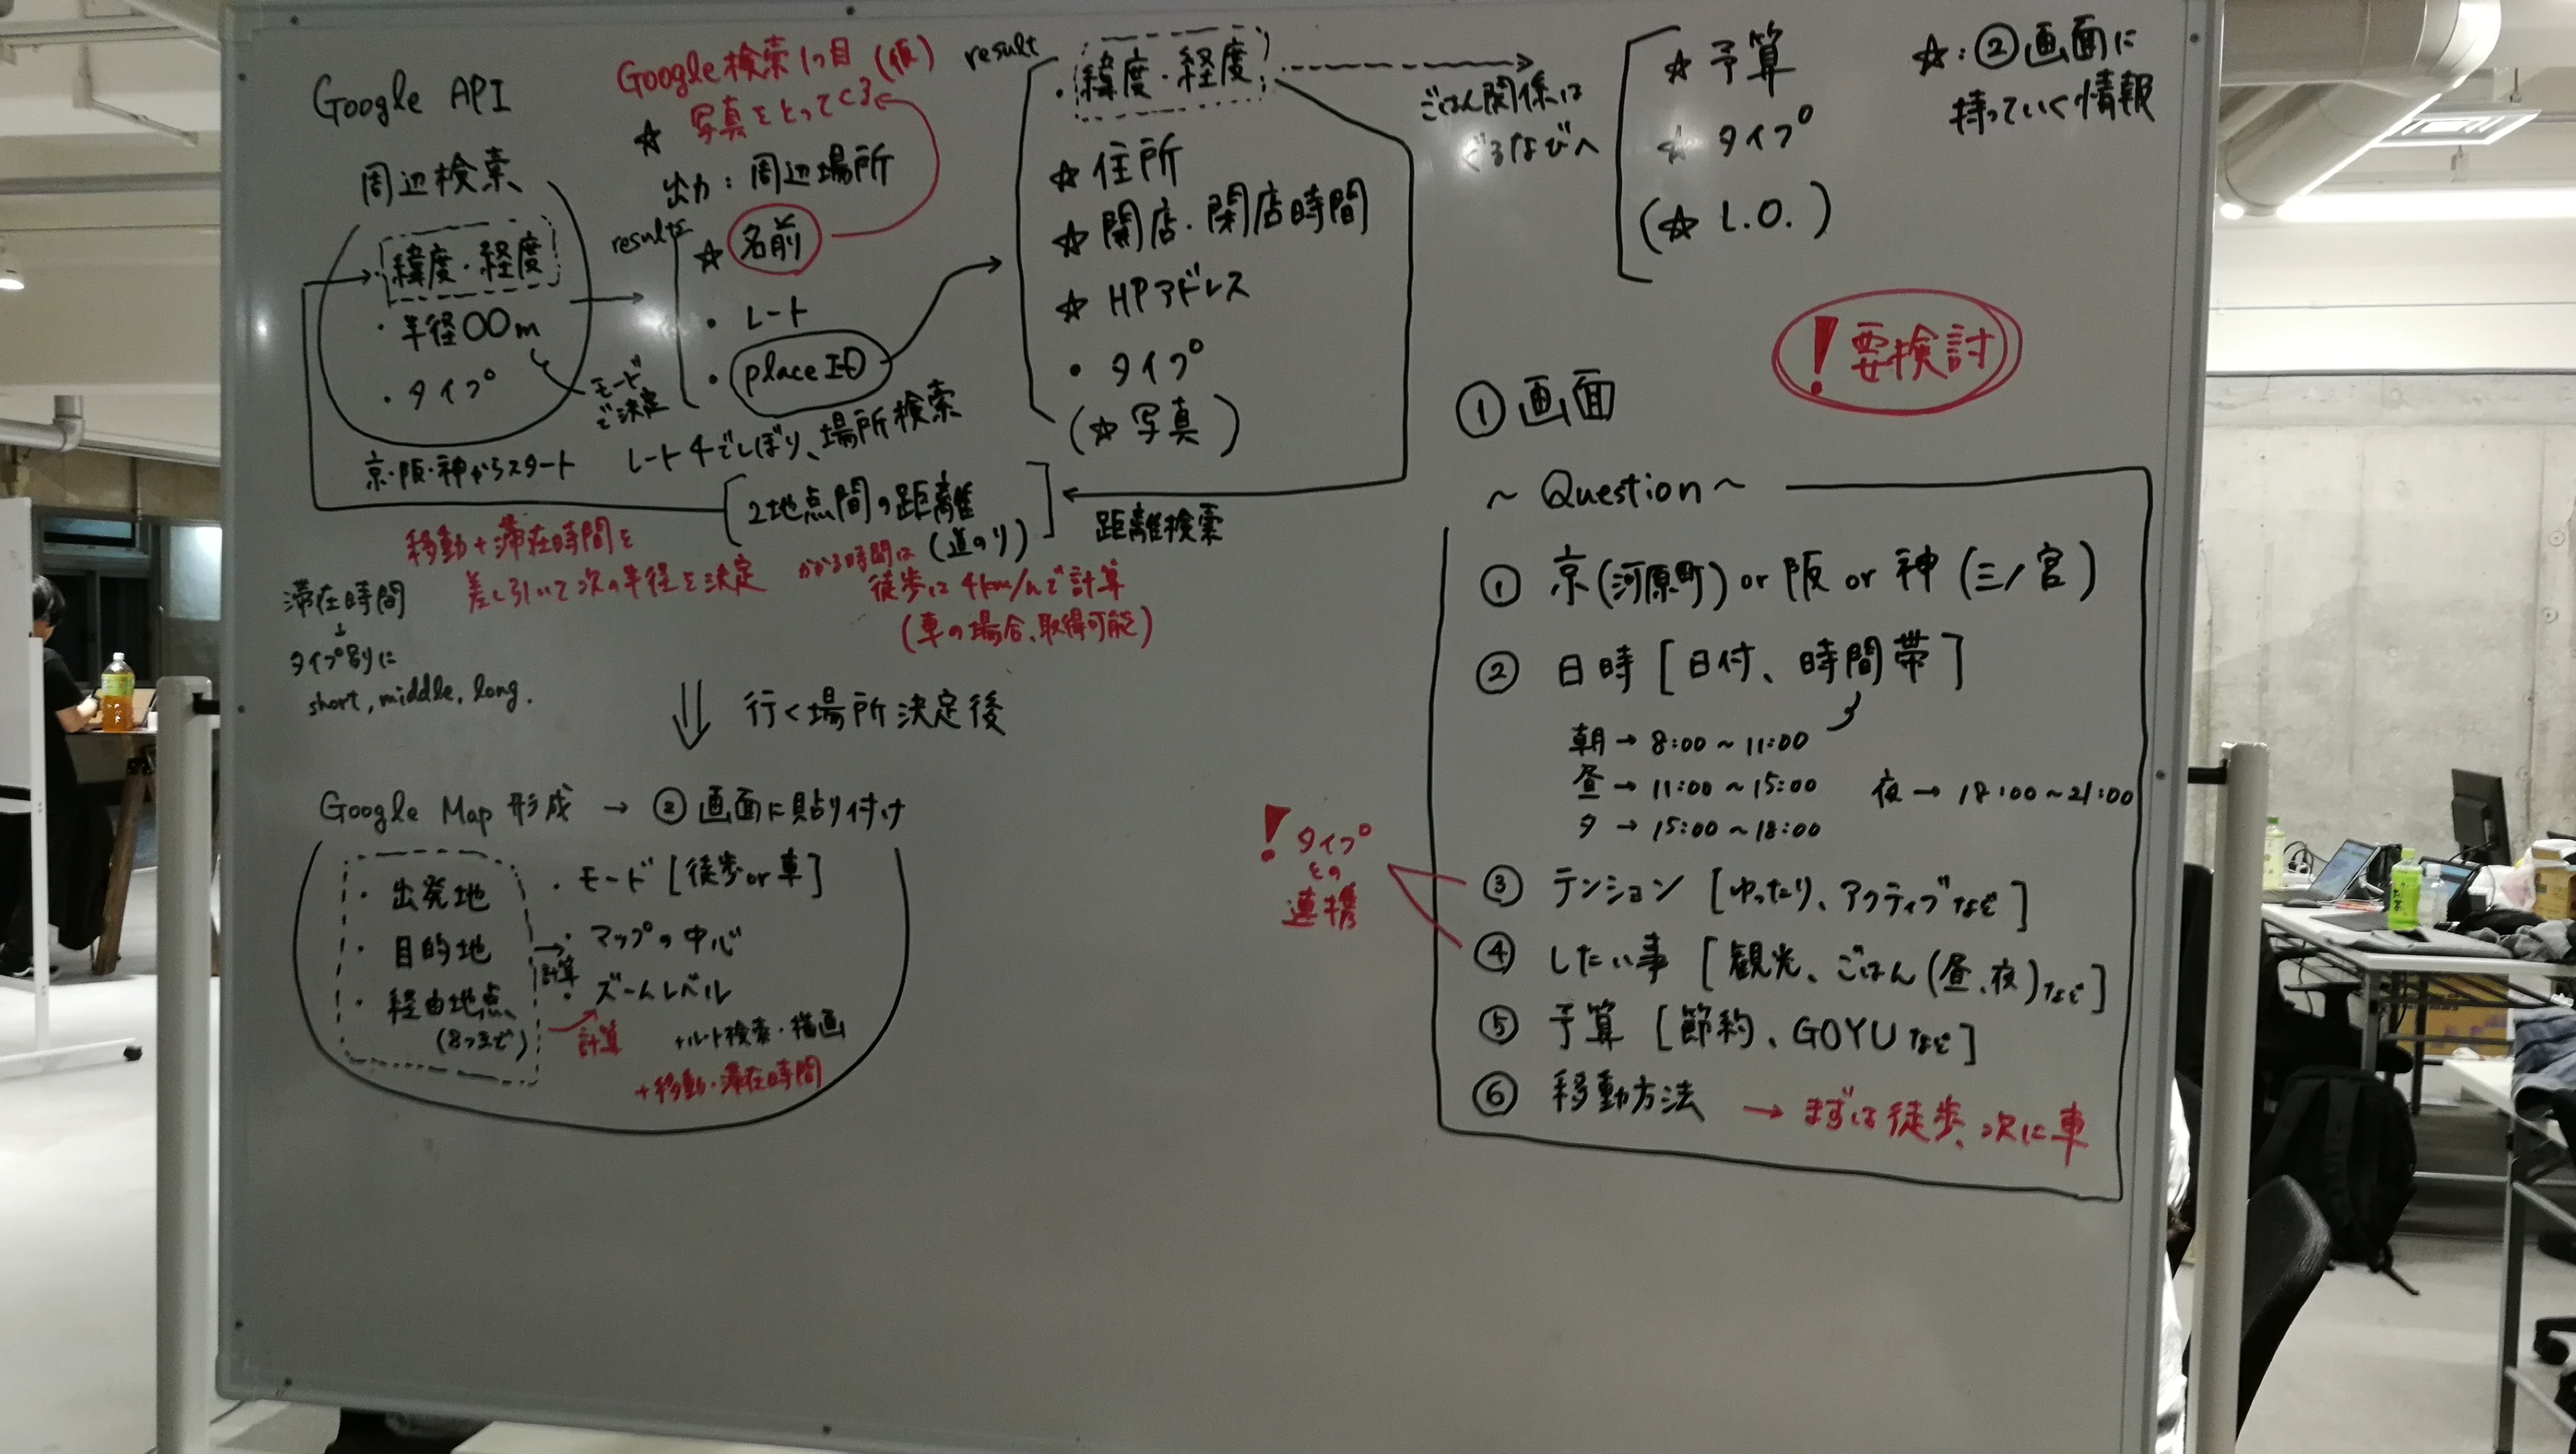 Google API
周辺検索
・緯度・経度
・半径〇〇m
・タイプ
モードで決定
京・阪・神からスタート
Google検索1つ目(仮)
☆ 写真をとってくる
出力:周辺場所
results
☆ 名前
・レート
・placeID
レート4でしぼり、場所検索
result
・緯度・経度
☆ 住所
☆ 開店・閉店時間
☆ HPアドレス
・タイプ
(☆ 写真)
ごはん関係は
ぐるなびへ
☆ 予算
☆ タイプ
(☆ L.O.)
☆:②画面に
持っていく情報
! 要検討
距離検索
2地点間の距離
(道のり)
かかる時間は
徒歩は4km/hで計算
(車の場合、取得可能)
移動+滞在時間を
差し引いて次の半径を決定
滞在時間
↓
タイプ別に
short, middle, long.
⇓ 行く場所決定後
Google Map 形成 → ②画面に貼り付け
・出発地
・目的地
・経由地点
(8つまで)
→
計算
・モード[徒歩or車]
・マップの中心
・ズームレベル
計算
+ルート検索・描画
+移動・滞在時間
①画面
~ Question ~
① 京(河原町) or 阪 or 神(三ノ宮)
② 日時[日付、時間帯]
朝→ 8:00~11:00
昼→ 11:00~15:00
夕→ 15:00~18:00
夜→ 18:00~21:00
③ テンション[ゆったり、アクティブなど]
④ したい事[観光、ごはん(昼、夜)など]
⑤ 予算[節約、GOYUなど]
⑥ 移動方法 → まずは徒歩、次に車
! タイプ
との
連携